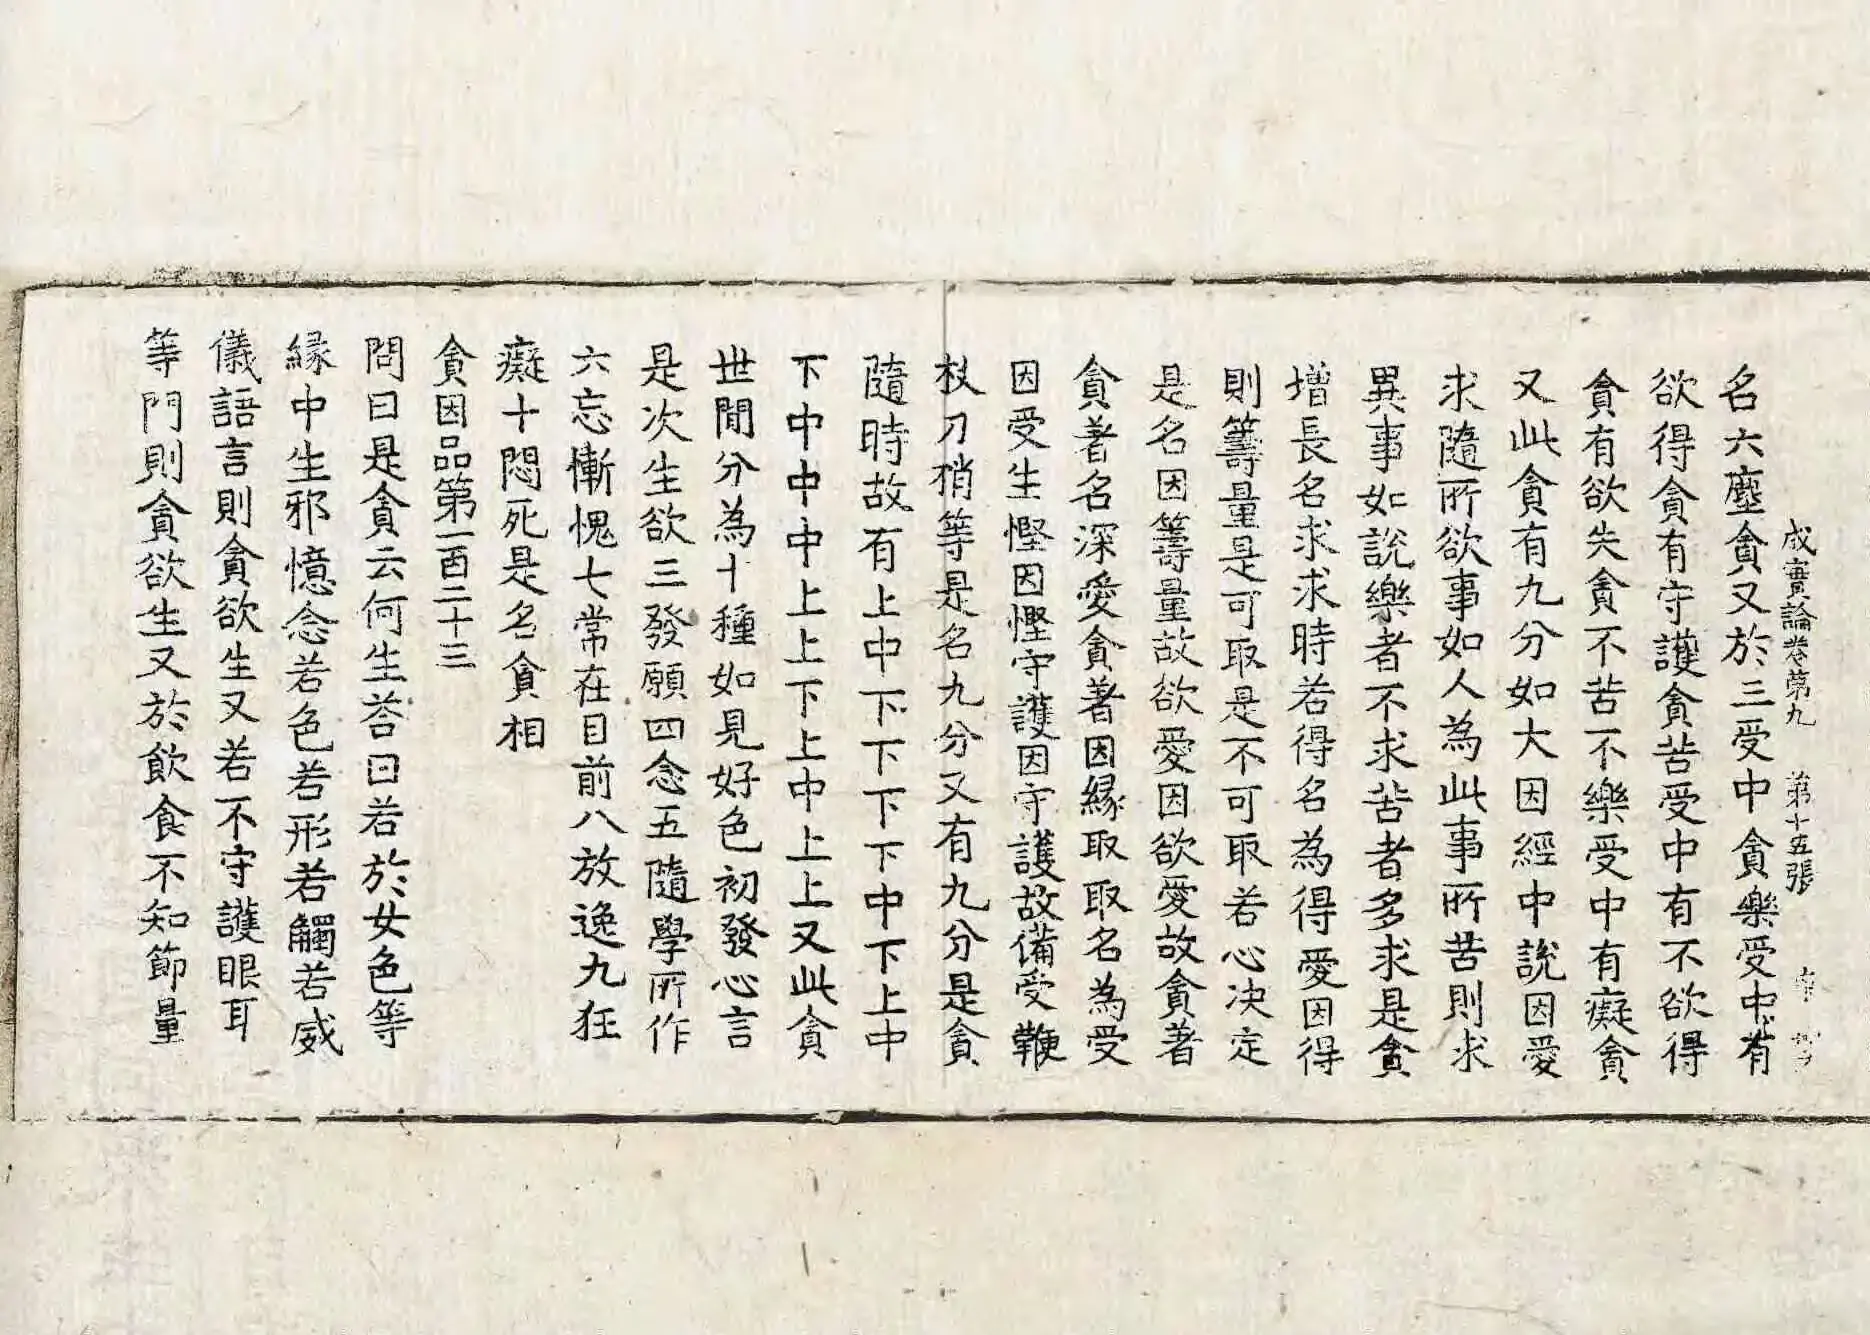 成實論卷第九 第十五張
名六塵貪又於三受中貪樂受中有
欲得貪有守護貪苦受中有不欲得
貪有欲失貪不苦不樂受中有癡貪
又此貪有九分如大因經中說因愛
求隨所欲事如人為此事所苦則求
異事如說樂者不求苦者多求是貪
增長名求求時若得名為得愛因得
則籌量是可取是不可取若心决定
是名因籌量故欲愛因欲愛故貪著
貪著名深愛貪著因緣取取名為受
因受生慳因慳守護因守護故備受鞭
杖刀矟等是名九分又有九分是貪
隨時故有上中下下下下中下上中
下中中中上上下上中上上又此貪
世間分為十種如見好色初發心言
是次生欲三發願四念五隨學所作
六忘慚愧七常在目前八放逸九狂
癡十悶死是名貪相
貪因品第一百二十三
問曰是貪云何生荅曰若於女色等
緣中生邪憶念若色若形若觸若威
儀語言則貪欲生又若不守護眼耳
等門則貪欲生又於飲食不知節量